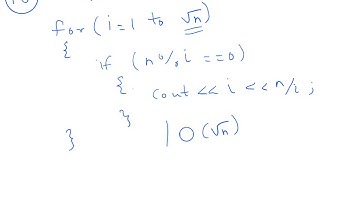 for ( i = 1 to √n )
{
if ( n % i == 0 )
{
cout << i << n/i ;
}
} | O(√n)